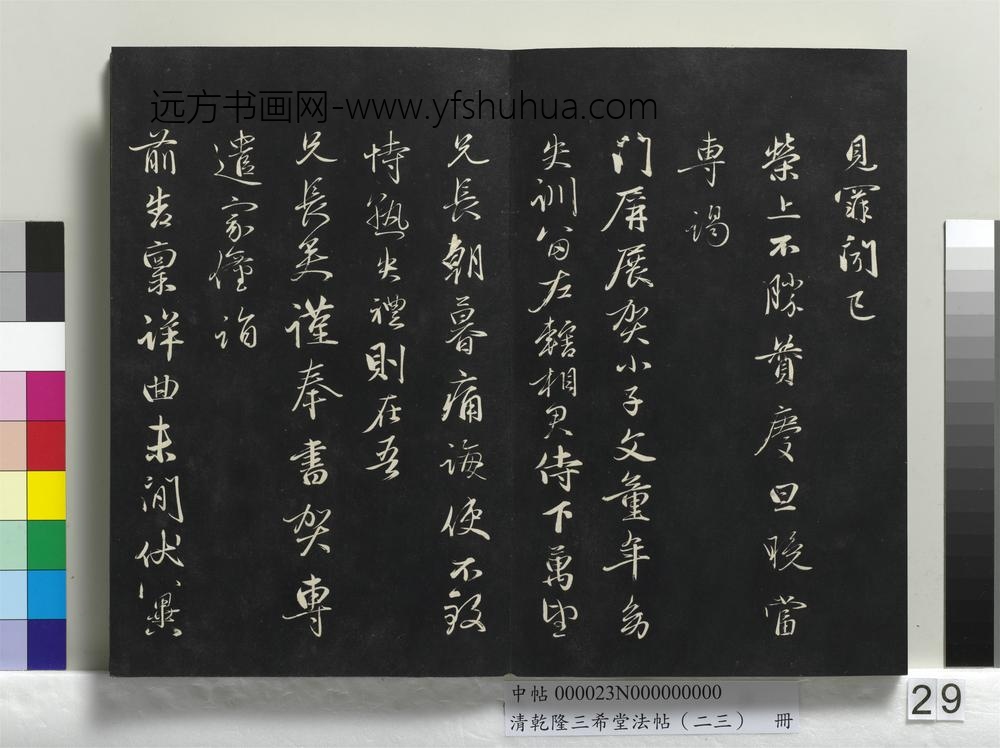 远方书画网-www.yfshuhua.com
見罪聞已
榮上不勝賛慶旦晚當
專謁
門屏展賀小子文童年多
失訓留左轄相君侍下萬望
兄長朝暮痛誨使不致
恃執失禮則在吾
兄長矣謹奉書賀專
遣家僮詣
前告稟詳曲未間伏冀
中帖 000023N000000000
清乾隆三希堂法帖（二三） 冊
29